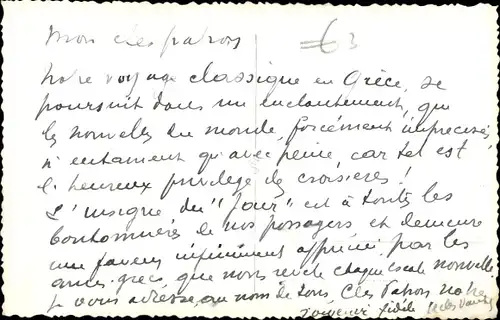 Mon cher patron
€ 3
Notre voyage classique en Grèce, se
poursuit dans un enchantement, que
les nouvelles du monde, forcément imprécises,
n'entament qu'avec peine, car tel est
l'heureux privilège de croisières !
L'insigne du "Jour" est à toutes les
boutonnières de nos passagers et demeure
une faveur infiniment apprécié par les
amis grecs que nous révèle chaque escale nouvelle
Je vous adresse, au nom de tous, cher Patron notre
souvenir fidèle